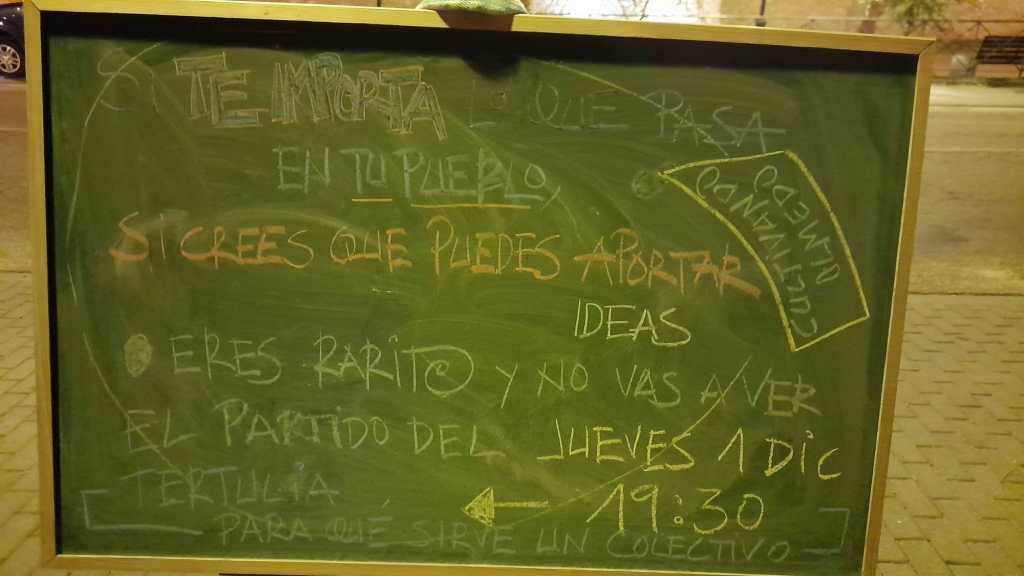 SI TE IMPORTA LO QUE PASA
EN TU PUEBLO,
SI CREES QUE PUEDES APORTAR
IDEAS
CULTIVANDO
OLMEDO
O ERES RARIT@ Y NO VAS A VER
EL PARTIDO DEL JUEVES 1 DIC
TERTULIA ← 19:30
PARA QUÉ SIRVE UN COLECTIVO